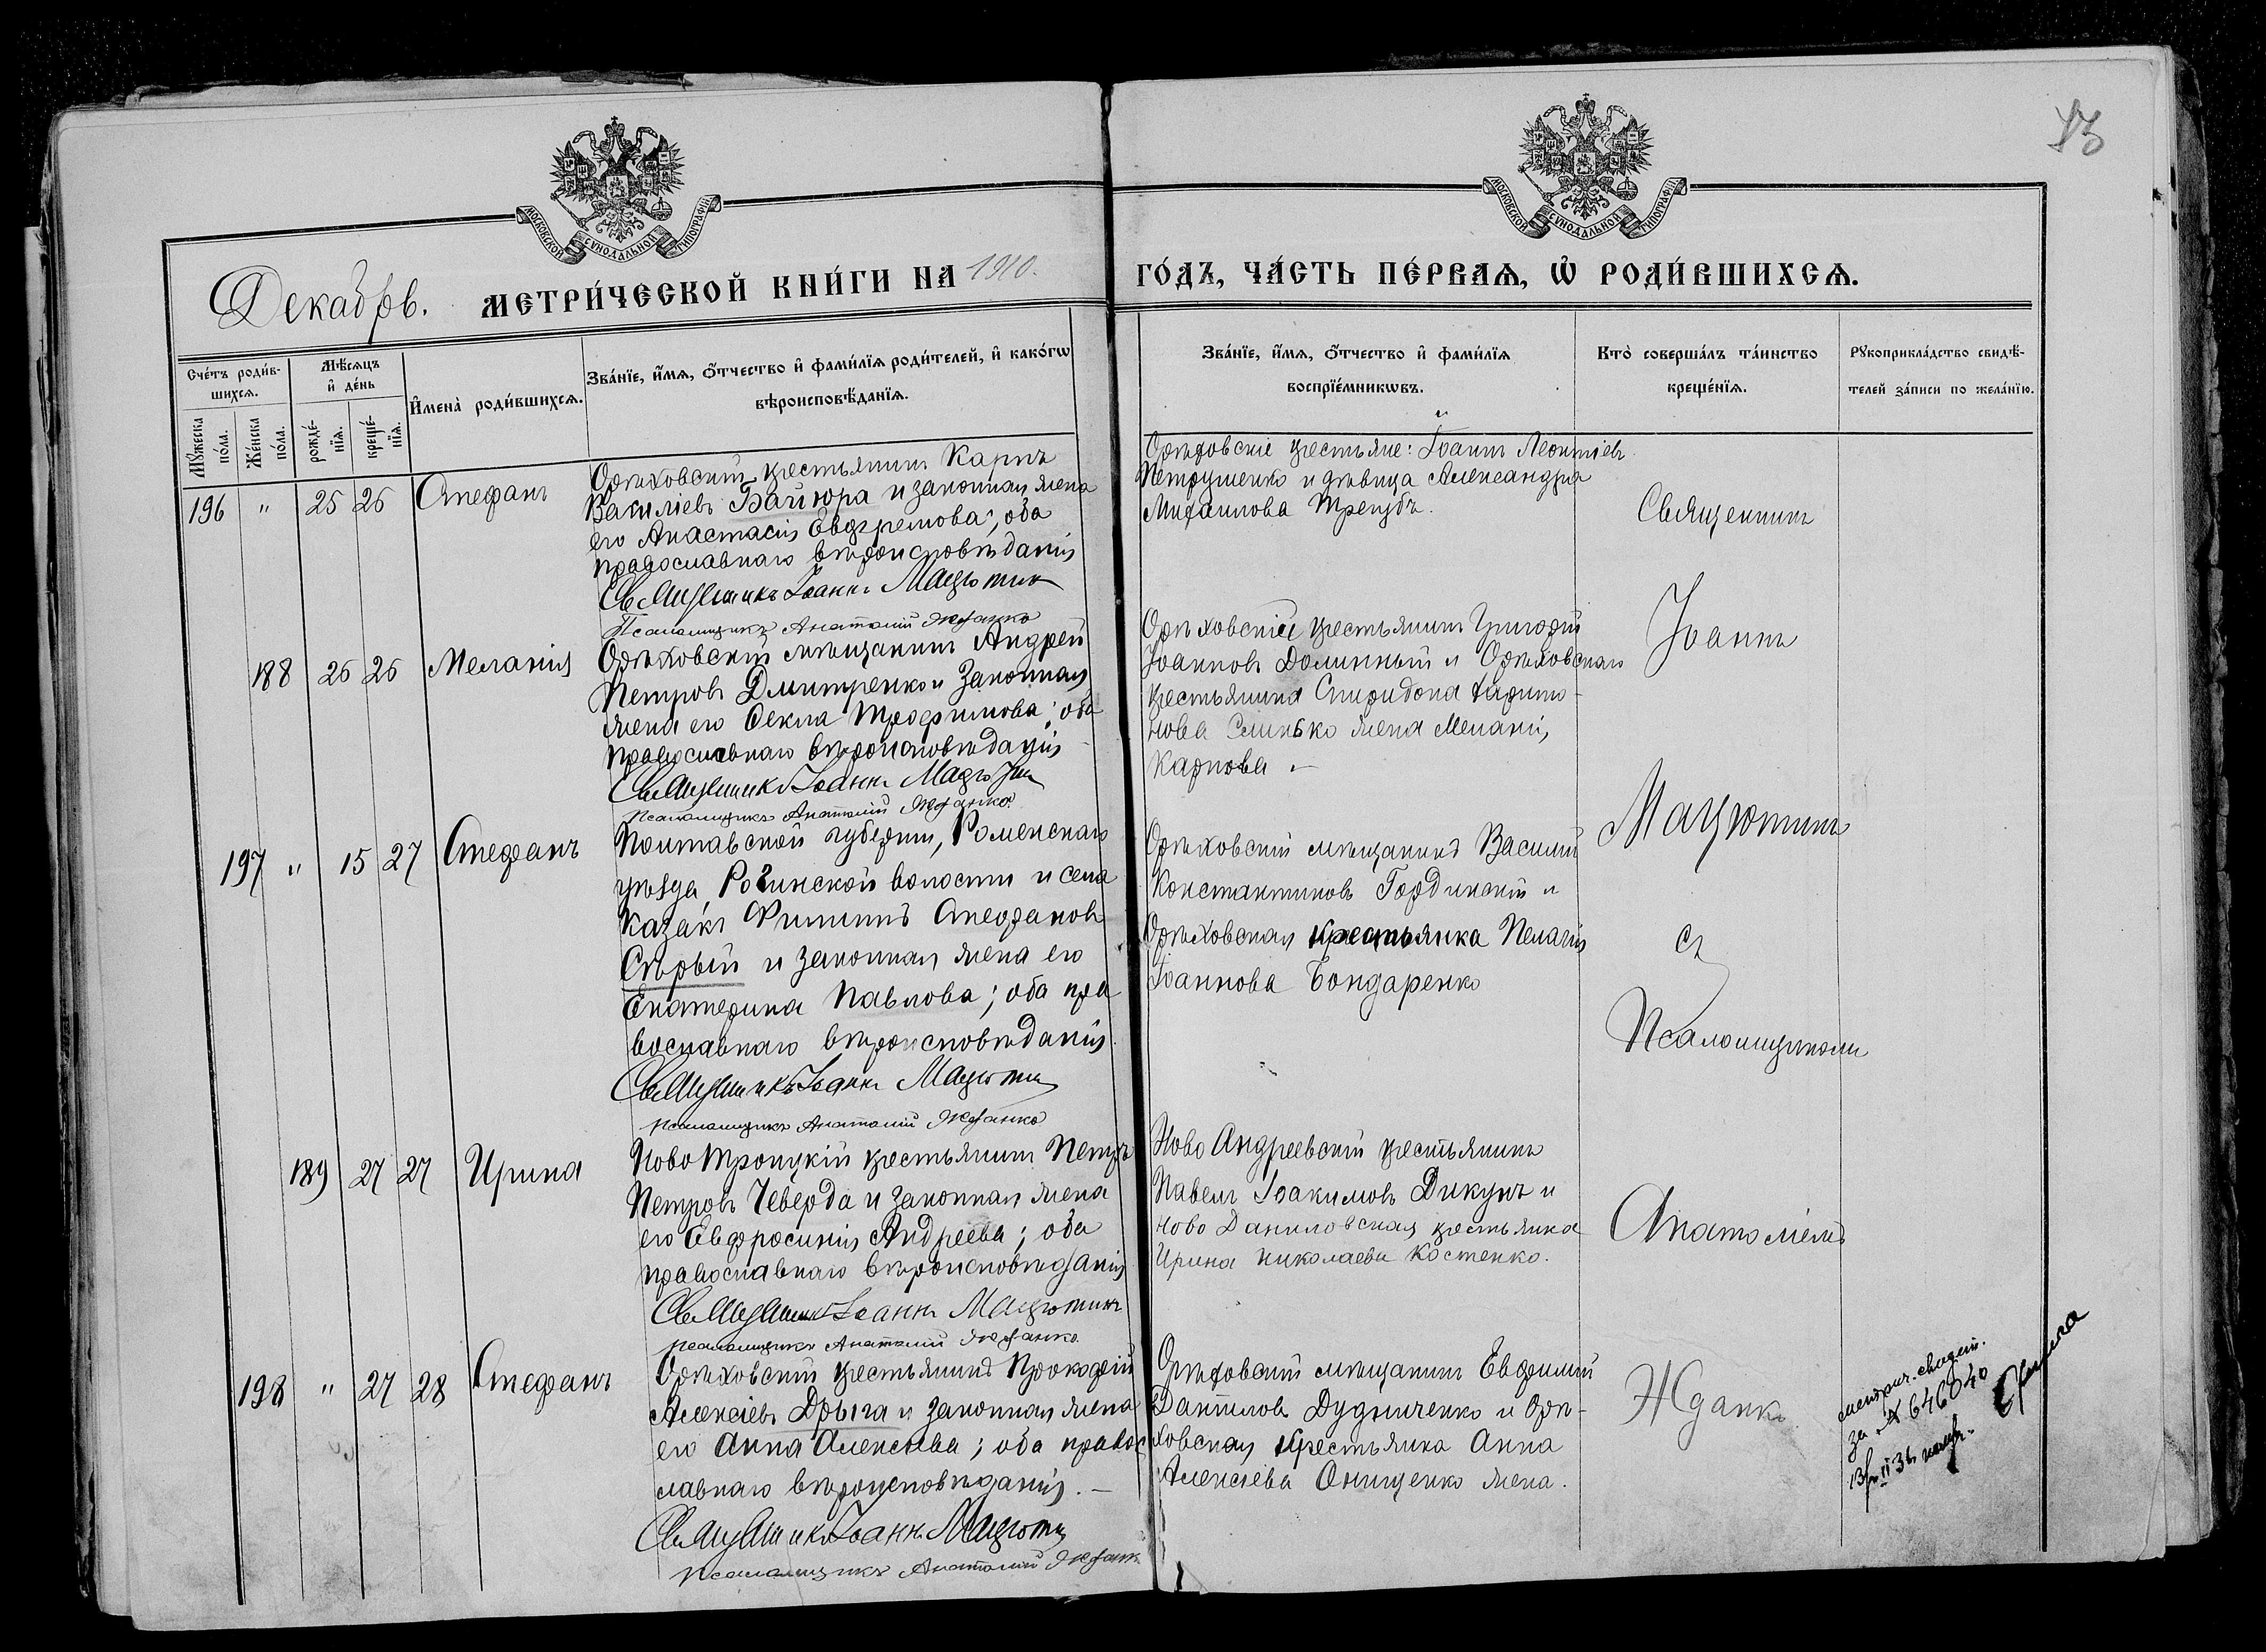 73
МОСКОВСКОЙ СѴНОДАЛЬНОЙ ТИПОГРАФІИ
МОСКОВСКОЙ СѴНОДАЛЬНОЙ ТИПОГРАФІИ
Декабрь. МЕТРИ́ЧЕСКОЙ КНИ́ГИ НА 1910.
ГО́ДЪ, ЧА́СТЬ ПЕ́РВАѦ, Ѡ҆ РОДИ́ВШИХСѦ.
Сче́тъ роди́вшихсѧ.
Мꙋ́жеска по́ла.
Же́нска по́ла.
Мѣ́сѧцъ и҆ де́нь
рожде́нїѧ.
креще́нїѧ.
И҆мена̀ роди́вшихсѧ.
Зва́нїе, и҆́мѧ, ѻ҆́тчество и҆ фами́лїѧ роди́телей, и҆ како́гѡ
вѣроисповѣ́данїѧ.
Зва́нїе, и҆́мѧ, ѻ҆́тчество и҆ фами́лїѧ
воспрїе́мникѡвъ.
Кто̀ соверша́лъ та́инство
креще́нїѧ.
Рꙋкоприкла́дство свидѣ́-
телей за́писи по жела́нїю.
196 " 25 26 Стефанъ
Орѣховскій крестьянинъ Карпъ
Василіевъ Байюра и законная жена
его Анастасія Евдремова; оба
православнаго вѣроисповѣданія
Священникъ Іоаннъ Мацютин
Псаломщикъ Анатолій Жданко
Орѣховскіе крестьяне: Іоаннъ Леонтіевъ
Петрушенко и дѣвица Александра
Михаилова Трегубъ.
188 26 26 Меланія
Орѣховскій мѣщанинъ Андрей
Петровъ Дмитренко и законная
жена его Ѳекла Трофимова; оба
православнаго вѣроисповѣданія
Священникъ Іоаннъ Мацютин
Псаломщикъ Анатолій Жданко.
Орѣховскій крестьянинъ Григорій
Іоанновъ Долинный и Орѣховскаго
крестьянина Спиридона Харито-
нова Слинько жена Меланія
Карпова –
197 " 15 27 Стефанъ
Полтавской губерніи, Роменскаго
уѣзда, Рогинской волости и села
казакъ Филиппъ Стефановъ
Сѣрый и законная жена его
Екатерина Павлова; оба пра
вославнаго вѣроисповѣданія.
Священникъ Іоаннъ Мацютин
Псаломщикъ Анатолій Жданко
Орѣховскій мѣщанинъ Василій
Константиновъ Гординскій и
Орѣховская крестьянка Пелагія
Іоаннова Бондаренко
189 27 27 Ирина
Ново Троицкій крестьянинъ Петръ
Петровъ Чеверда и законная жена
его Евфросинія Андреева; оба
православнаго вѣроисповѣданія
Священникъ Іоаннъ Мацютинъ
Псаломщикъ Анатолій Жданко.
Ново Андреевскій крестьянинъ
Павелъ Іоакимовъ Дикунъ и
ново Даниловская крестьянка
Ирина Николаева Костенко.
198 " 27 28 Стефанъ
Орѣховскій крестьянинъ Прокофій
Алексіевъ Дрыга и законная жена
его Анна Алексіева; оба правос
лавнаго вѣроисповѣданія. –
Священникъ Іоаннъ Мацютин
Псаломщикъ Анатолій Жданк
Орѣховскій мѣщанинъ Евфимій
Даниловъ Дудниченко и Орѣ-
ховская крестьянка Анна
Алексіева Онищенко жена.
Священникъ
Іоаннъ
Мацютинъ
съ
Псаломщикомъ
Анатоліемъ
Жданко
метрич. свидет.
за № 646040